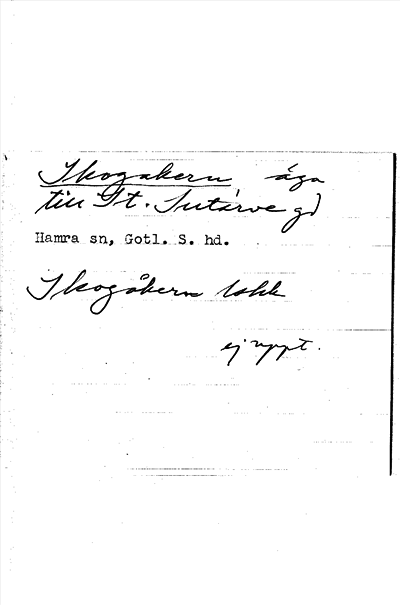 Skogakern, äga
till St. Sutarve gd
Hamra sn, Gotl. S. hd.
Skogåkern 1akk
ej uppt.